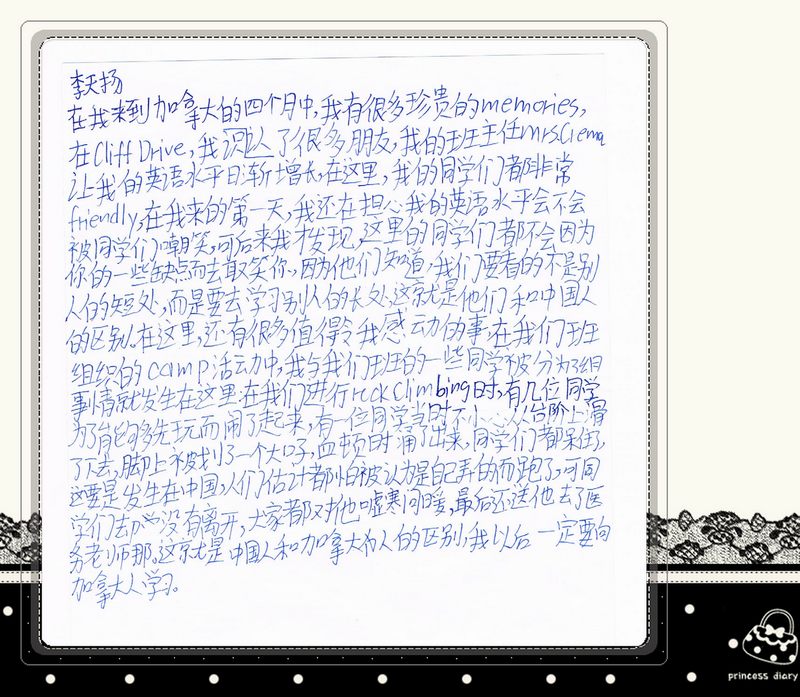 李天扬
在我来到加拿大的四个月中,我有很多珍贵的memories,
在Cliff Drive,我认识了很多朋友,我的班主任Mrs.Crema
让我的英语水平日渐增长,在这里,我的同学们都非常
friendly,在我来的第一天,我还在担心我的英语水平会不会
被同学们嘲笑,可后来我才发现,这里的同学们都不会因为
你的一些缺点而去取笑你,因为他们知道,我们要看的不是别
人的短处,而是要去学习别人的长处.这就是他们和中国人
的区别.在这里,还有很多值得令我感动的事.在我们班
组织的camp活动中,我与我们班的一些同学被分为3组
事情就发生在这里.在我们进行rock climbing时,有几位同学
为了能够多先玩而闹了起来,有一位同学当时不小心从台阶上滑
了下去,脚上被划了一个大口子,血顿时涌了出来,同学们都呆住,
这要是发生在中国,人们估计都怕被认为是自己弄的而跑了,可同
学们却没有离开,大家都对他嘘寒问暖,最后还送他去了医
务老师那。这就是中国人和加拿大的人的区别,我以后一定要向
加拿大人学习。
princess diary